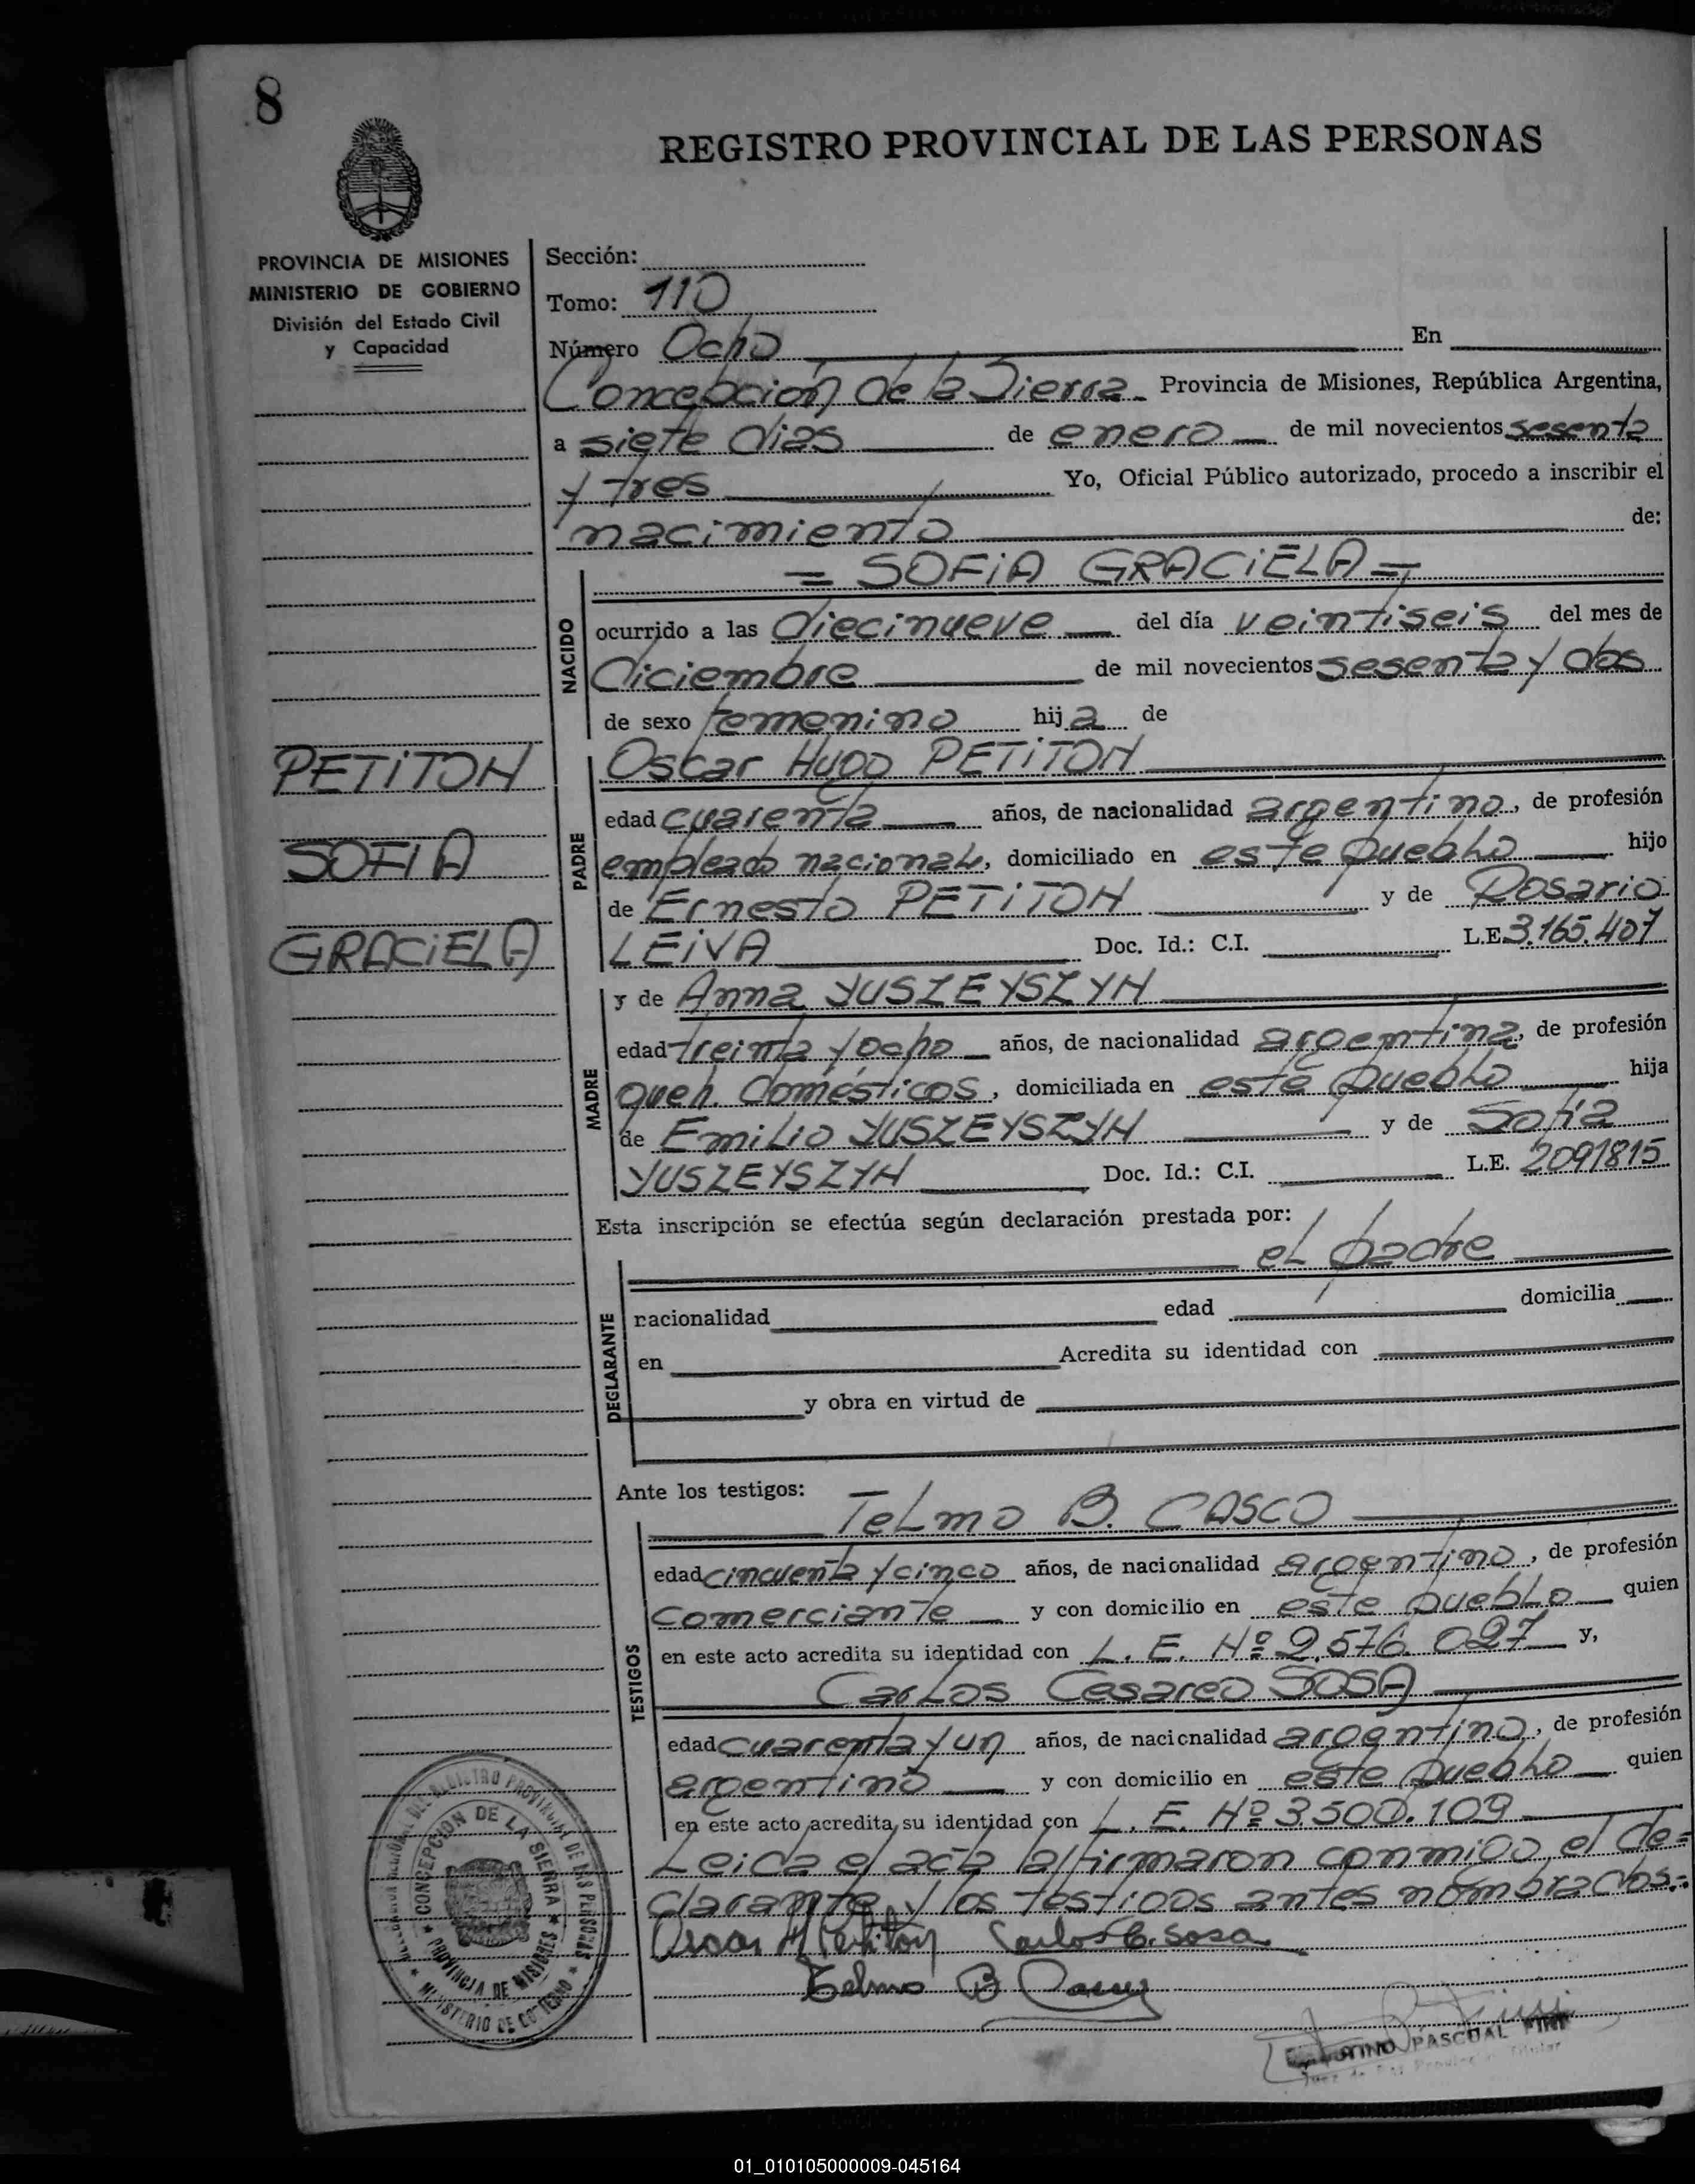 8
REGISTRO PROVINCIAL DE LAS PERSONAS
PROVINCIA DE MISIONES
MINISTERIO DE GOBIERNO
División del Estado Civil
y Capacidad
Sección:
Tomo: 110
Número Ocho En
Concepción de la Sierra Provincia de Misiones, República Argentina,
a siete dias de enero de mil novecientos sesenta
y tres Yo, Oficial Público autorizado, procedo a inscribir el
nacimiento de:
= SOFiA GRACiELA =
NACIDO
ocurrido a las diecinueve del día veintiseis del mes de
Diciembre de mil novecientos sesenta y dos
de sexo femenino hija de
PETiTON
SOFIA
GRACiELA
PADRE
Oscar Hugo PETiTON
edad cuarenta años, de nacionalidad argentino, de profesión
empleado nacional, domiciliado en este pueblo hijo
de Ernesto PETiTON y de Rosario
LEiVA Doc. Id.: C.I. L.E. 3.165.407
MADRE
y de Anna YUSZEYSZYN
edad treinta y ocho años, de nacionalidad argentina, de profesión
queh. domésticos, domiciliada en este pueblo hija
de Emilio YUSZEYSZYN y de Sofia
YUSZEYSZYN Doc. Id.: C.I. L.E. 2091815
Esta inscripción se efectúa según declaración prestada por:
el padre
DECLARANTE
nacionalidad edad domicilia
en Acredita su identidad con
y obra en virtud de
Ante los testigos:
Telmo B. CASCO
TESTIGOS
edad cincuenta y cinco años, de nacionalidad argentino, de profesión
comerciante y con domicilio en este pueblo quien
en este acto acredita su identidad con L. E. Nº 2.576.027 y,
Carlos Cesareo SOSA
edad cuarenta y un años, de nacionalidad argentino, de profesión
argentino y con domicilio en este pueblo quien
en este acto acredita su identidad con L. E. Nº 3.500.109
Leida el acta la firmaron conmigo el de=
clarante y los testigos antes nombrados.=
Oscar H Petiton Carlos C. Sosa
Telmo B Casco
REGISTRO PROVINCIAL DE LAS PERSONAS
CONCEPCION DE LA SIERRA
PROVINCIA DE MISIONES
MINISTERIO DE GOBIERNO
PASCUAL
01_010105000009-045164